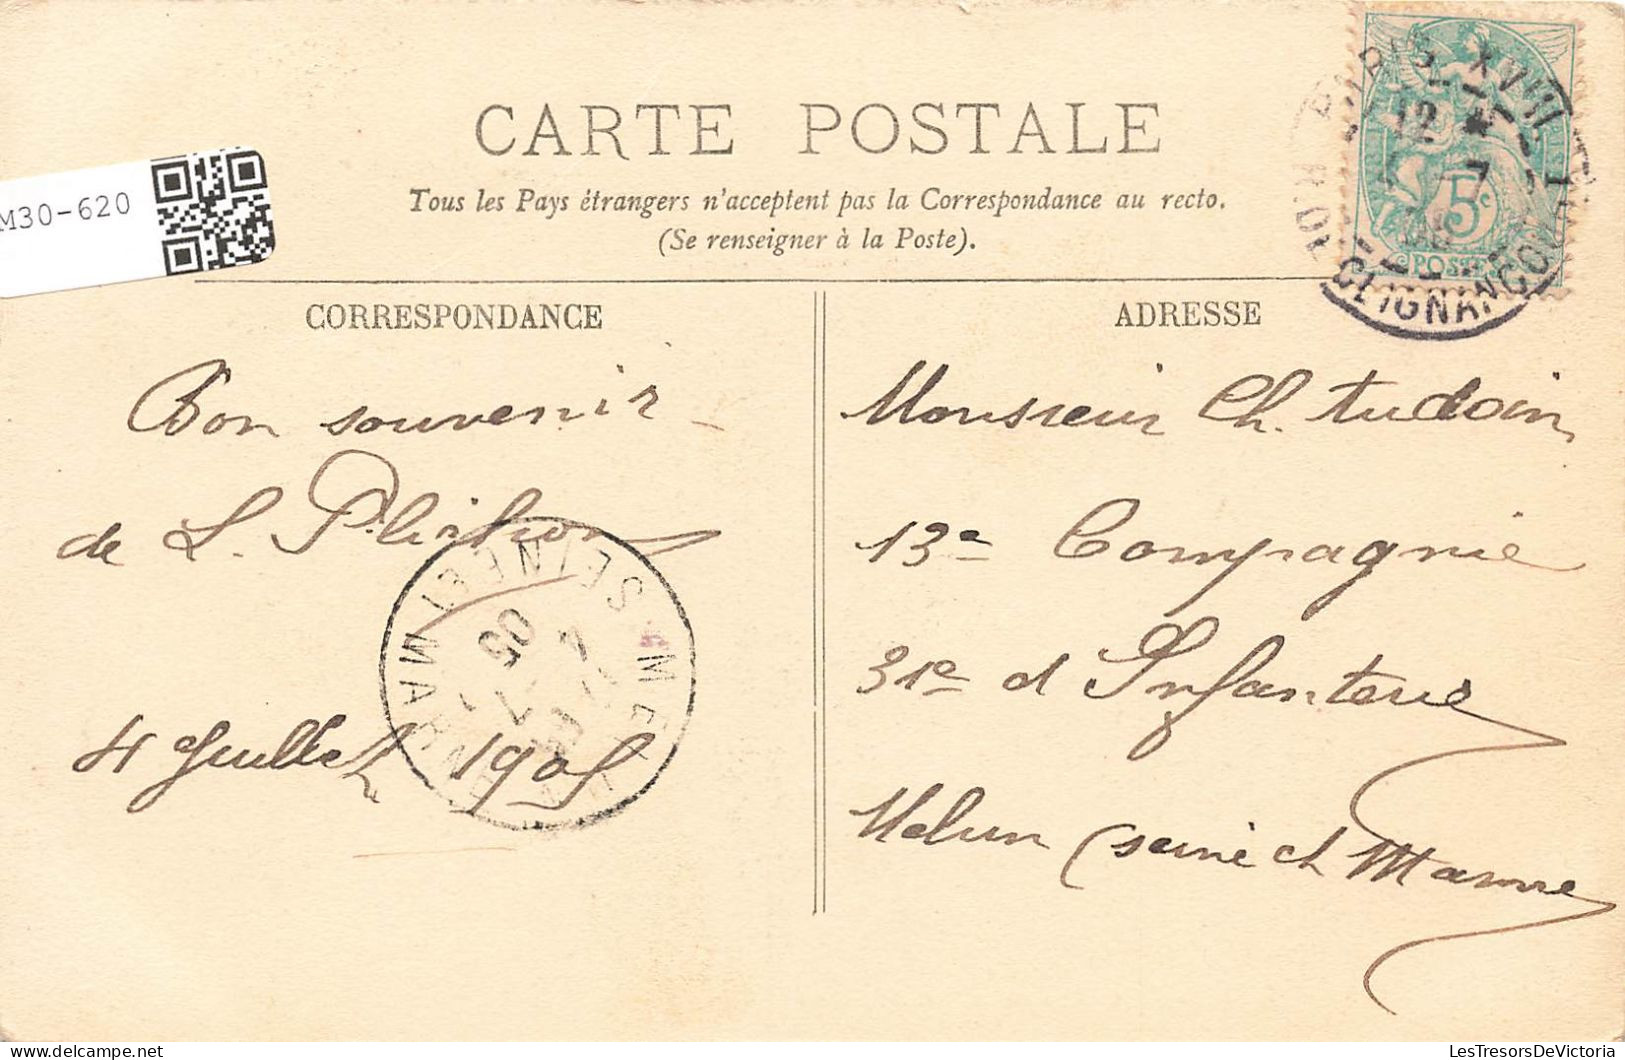 CARTE POSTALE
Tous les Pays étrangers n'acceptent pas la Correspondance au recto.
(Se renseigner à la Poste).
M30-620
CORRESPONDANCE
Bon souvenir
de L. Plichon
4 Juillet 1905
ADRESSE
Monsieur Ch. Audoin
13e Compagnie
31e d'Infanterie
Melun (Seine et Marne
5c
POSTES
PARIS XVIII
R. DE CLIGNANCOURT
12 7
MELUN
SEINE ET MARNE
05
LesTresorsDeVictoria